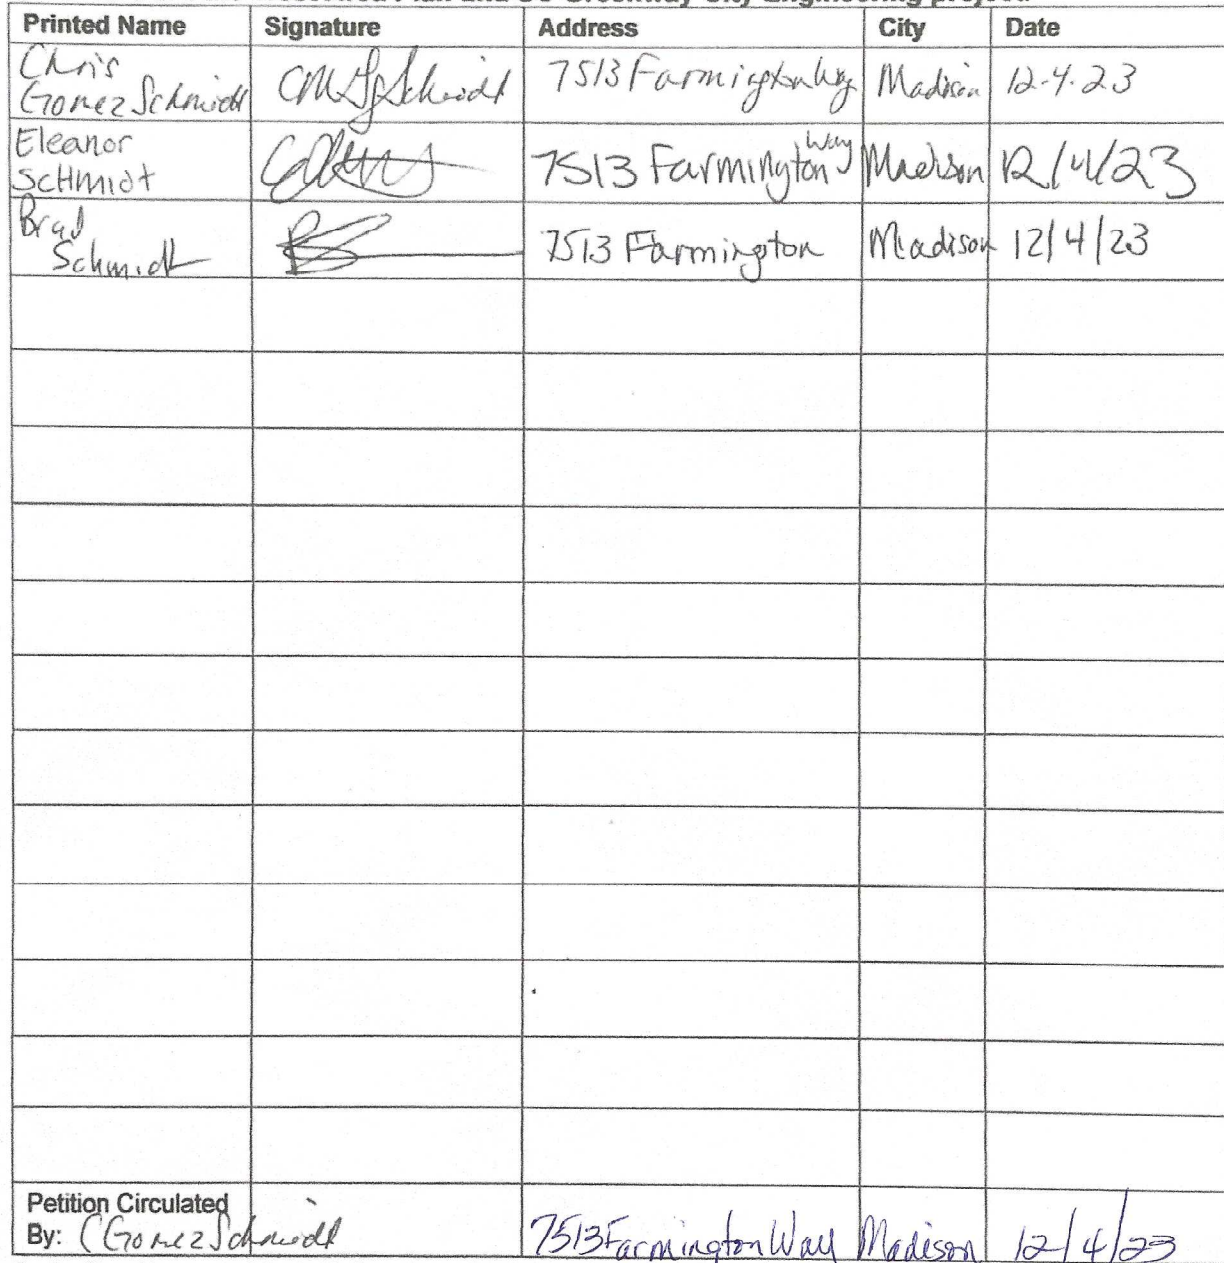 Plan and Greenway City Engineering project.
Printed Name Signature Address City Date
Chris
Gomez Schmidt 7513 Farmington Way Madison 12-4-23
Eleanor
SCHmidt 7513 Farmington Way Madison 12/4/23
Brad
Schmidt 7513 Farmington Madison 12/4/23
Petition Circulated
By: CGomezSchmidt 7513 Farmington Way Madison 12/4/23